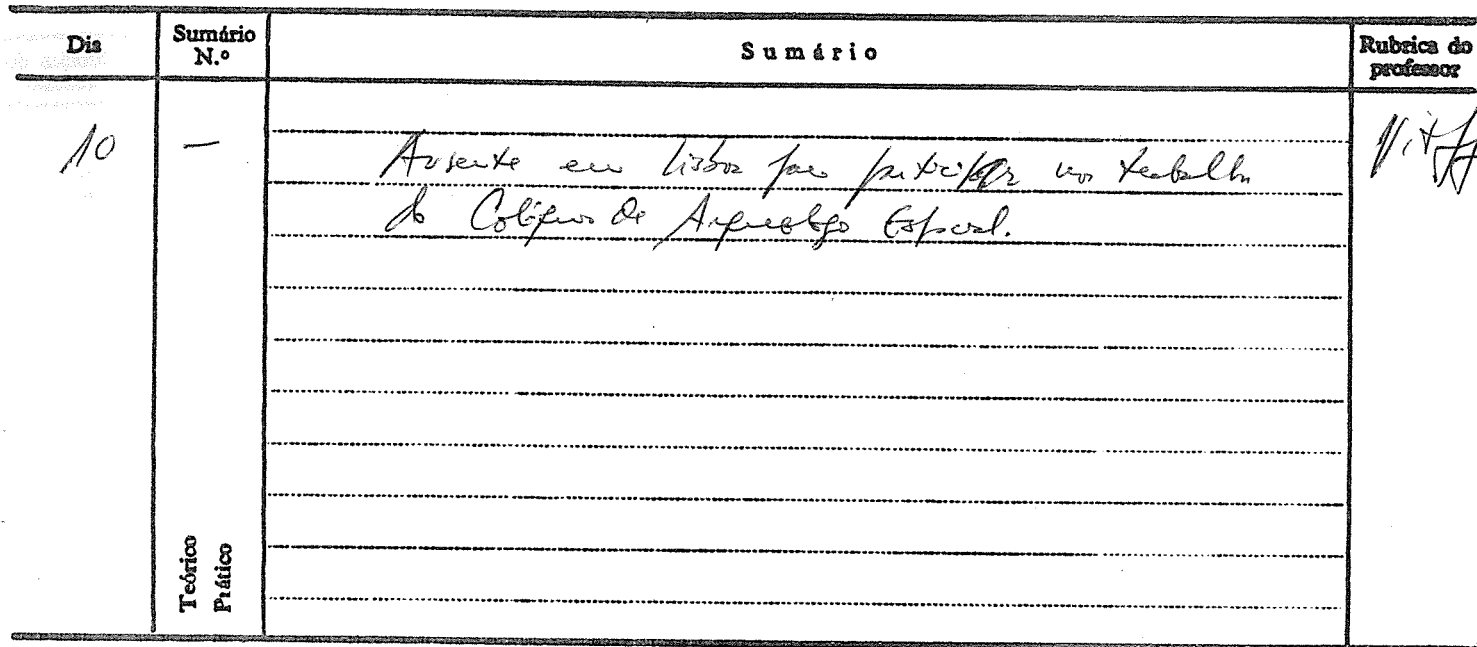 Dia
Sumário N.º
Sumário
Rubrica do professor
10
—
Ausente em Lisboa para participar nos trabalhos
do Colóquio de Arqueologia Espacial.
Teórico
Prático